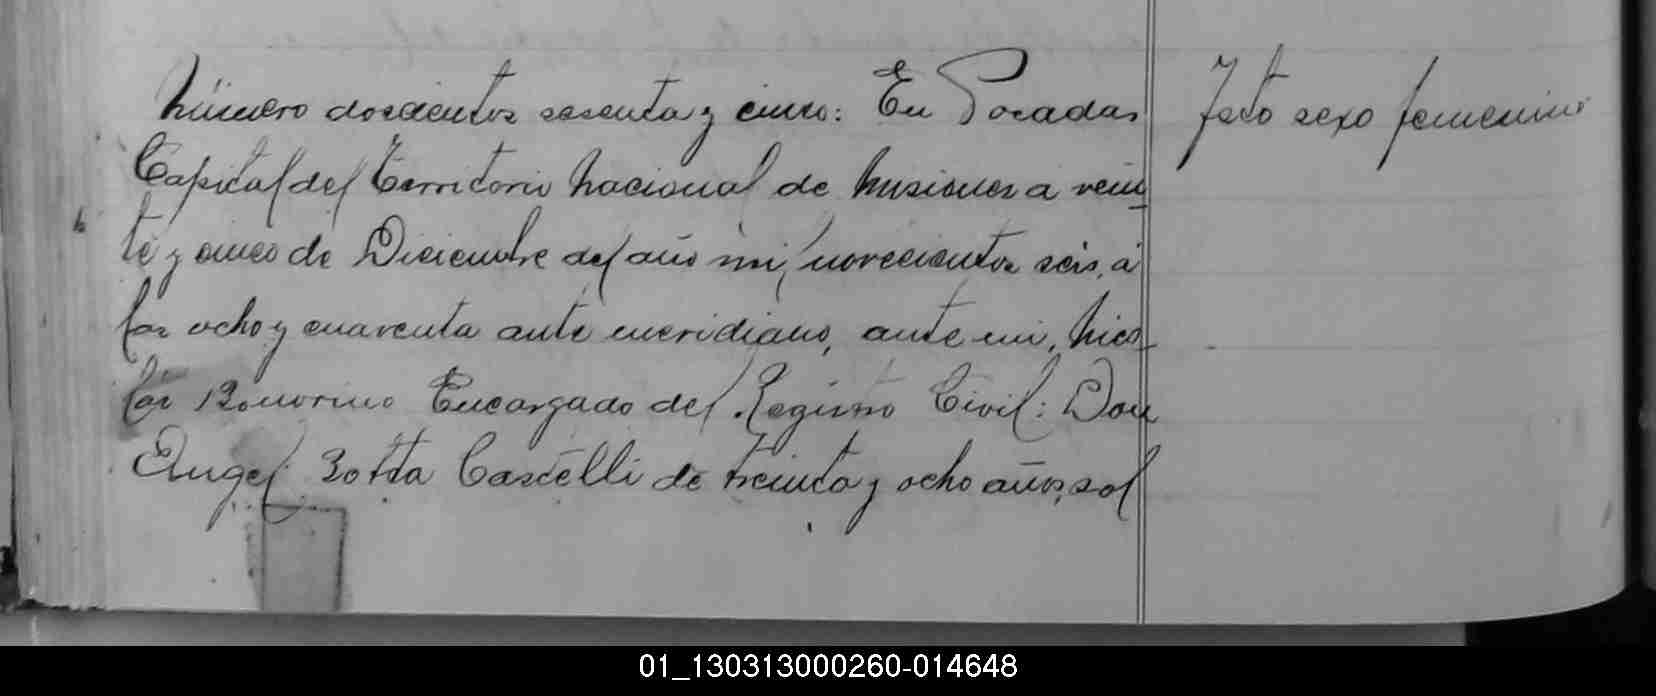 Número doscientos sesenta y cinco: En Posadas
Capital del Territorio Nacional de Misiones a vein
te y cinco de Diciembre del año mil novecientos seis, á
las ocho y cuarenta ante meridiano, ante mi, Nico
lás Bonorino Encargado del Registro Civil: Don
Angel Botta Castelli de treinta y ocho años, sol
Feto sexo femenino
01_130313000260-014648